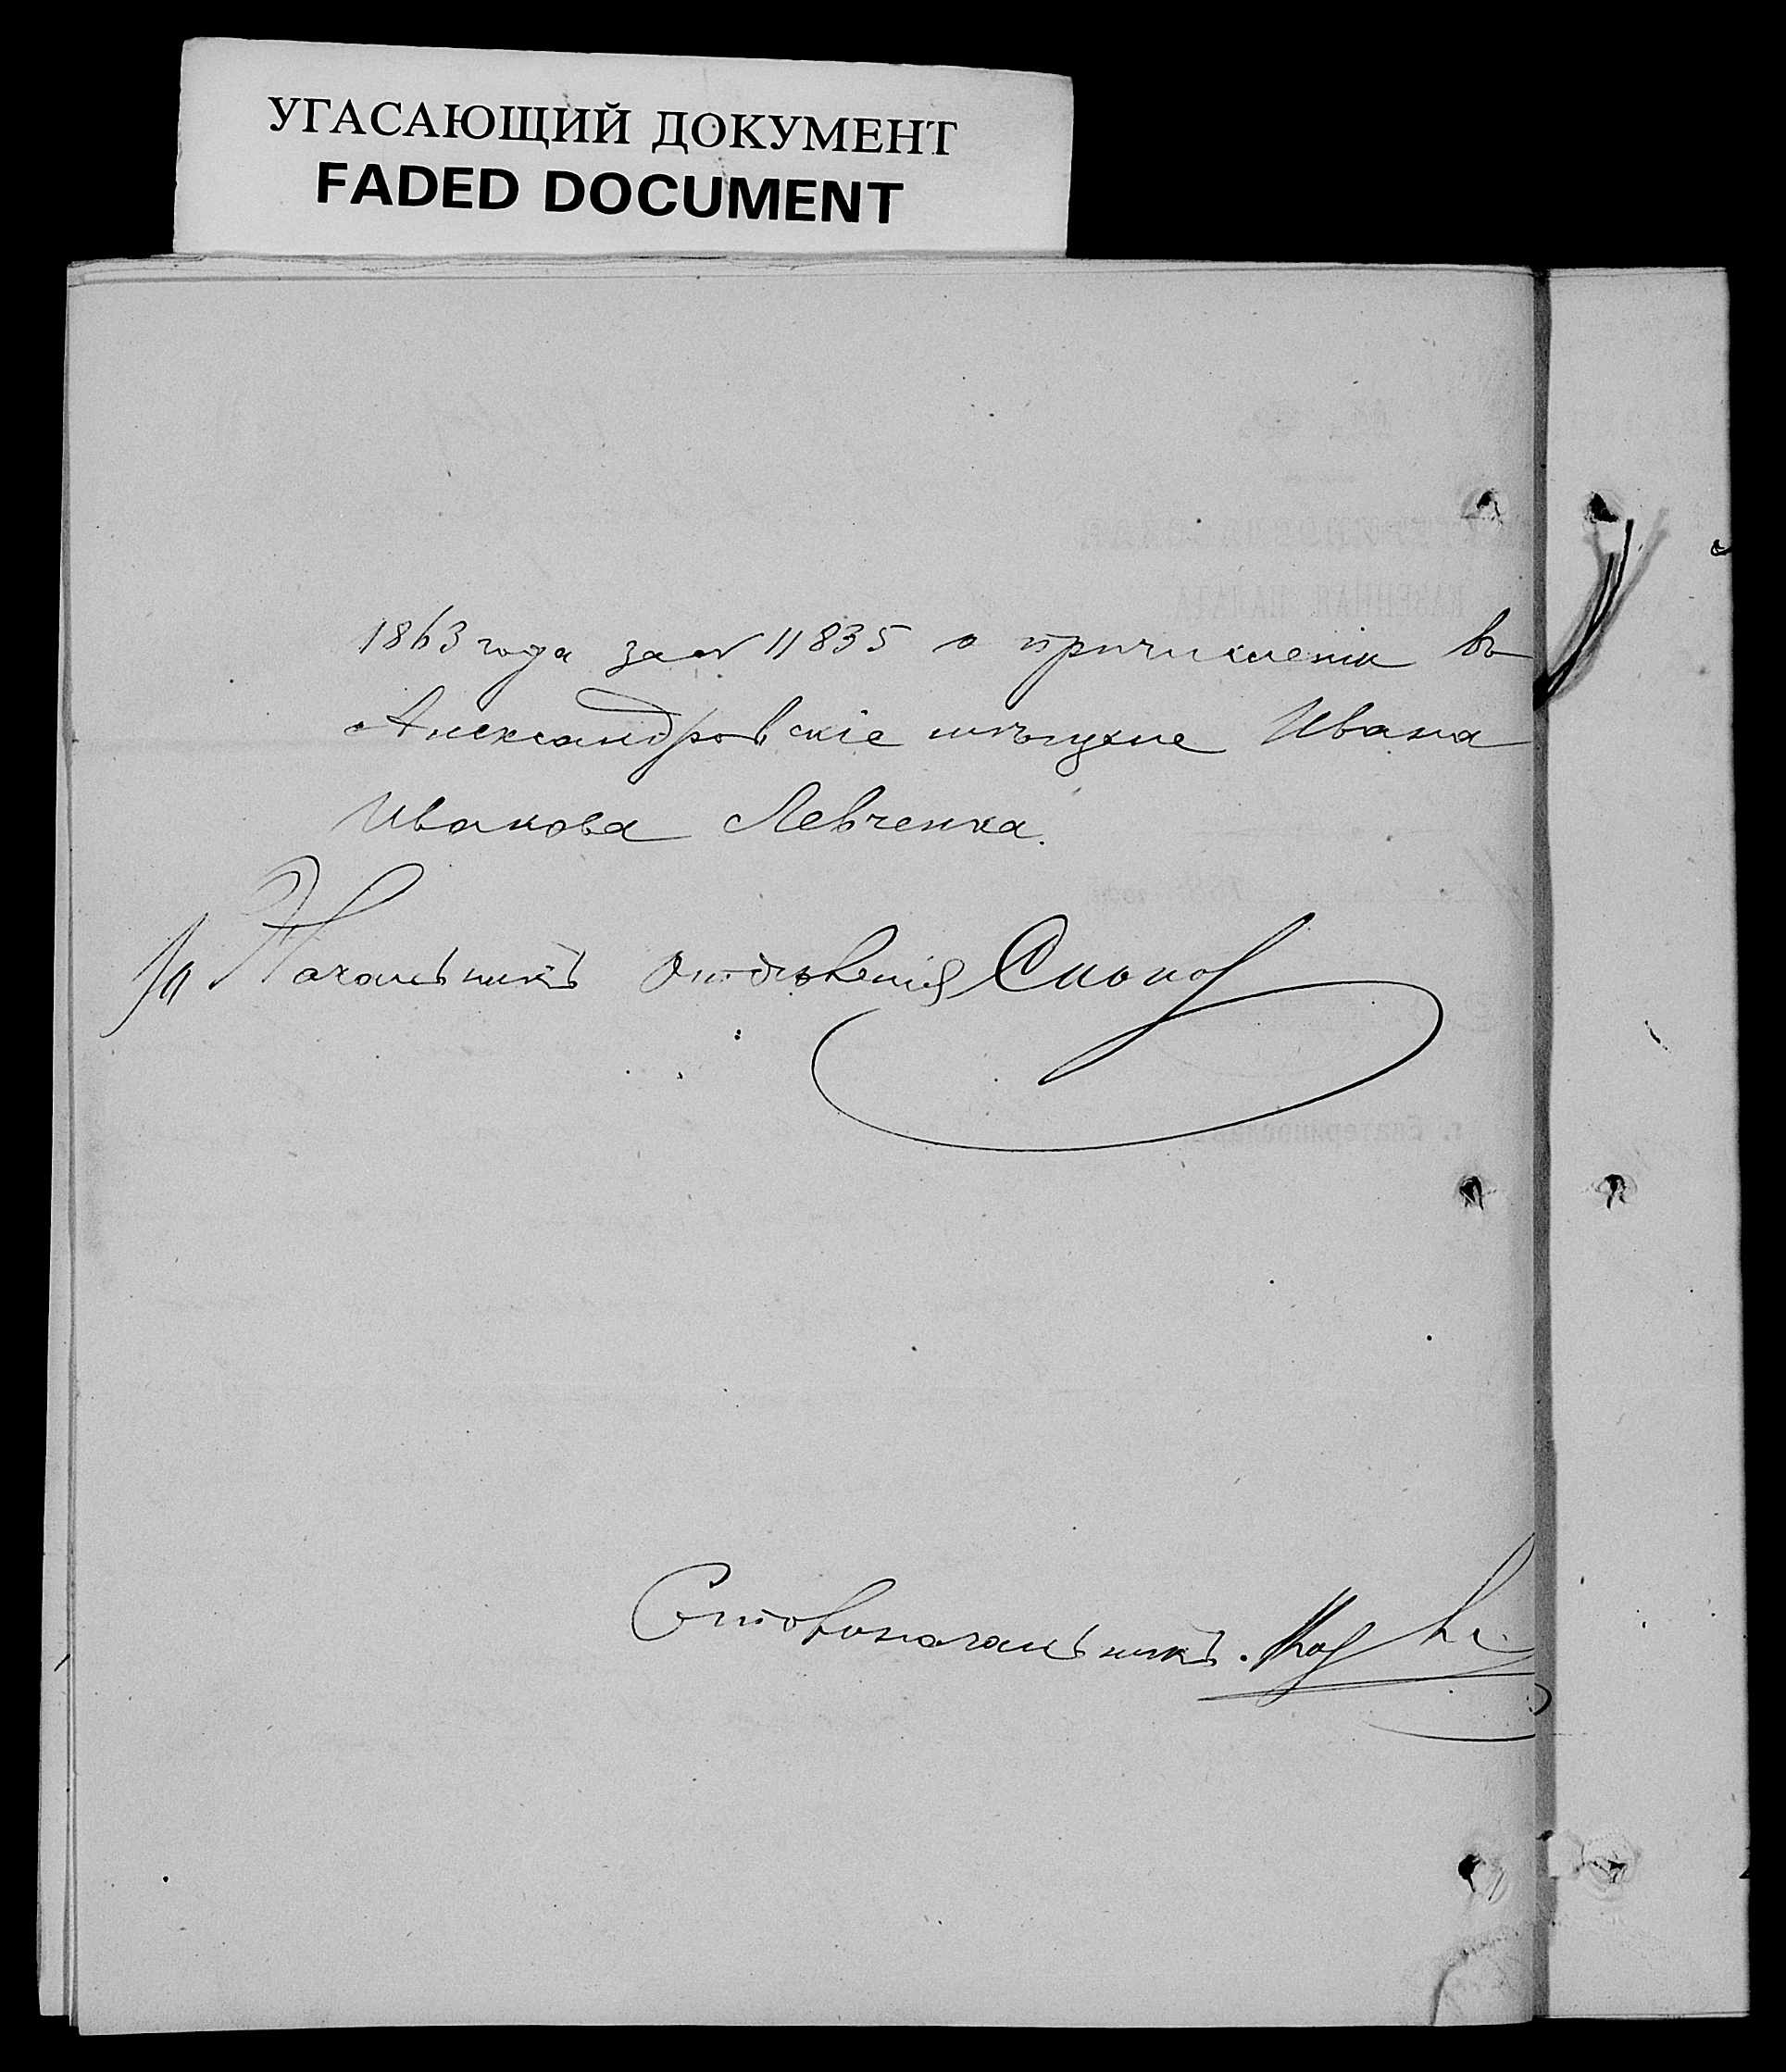 УГАСАЮЩИЙ ДОКУМЕНТ
FADED DOCUMENT
1863 года за № 11835 о причисленіи въ
Александровскіе мѣщане Ивана
Иванова Левченка.
За Начальникъ Отдѣленія
Столоначальникъ.